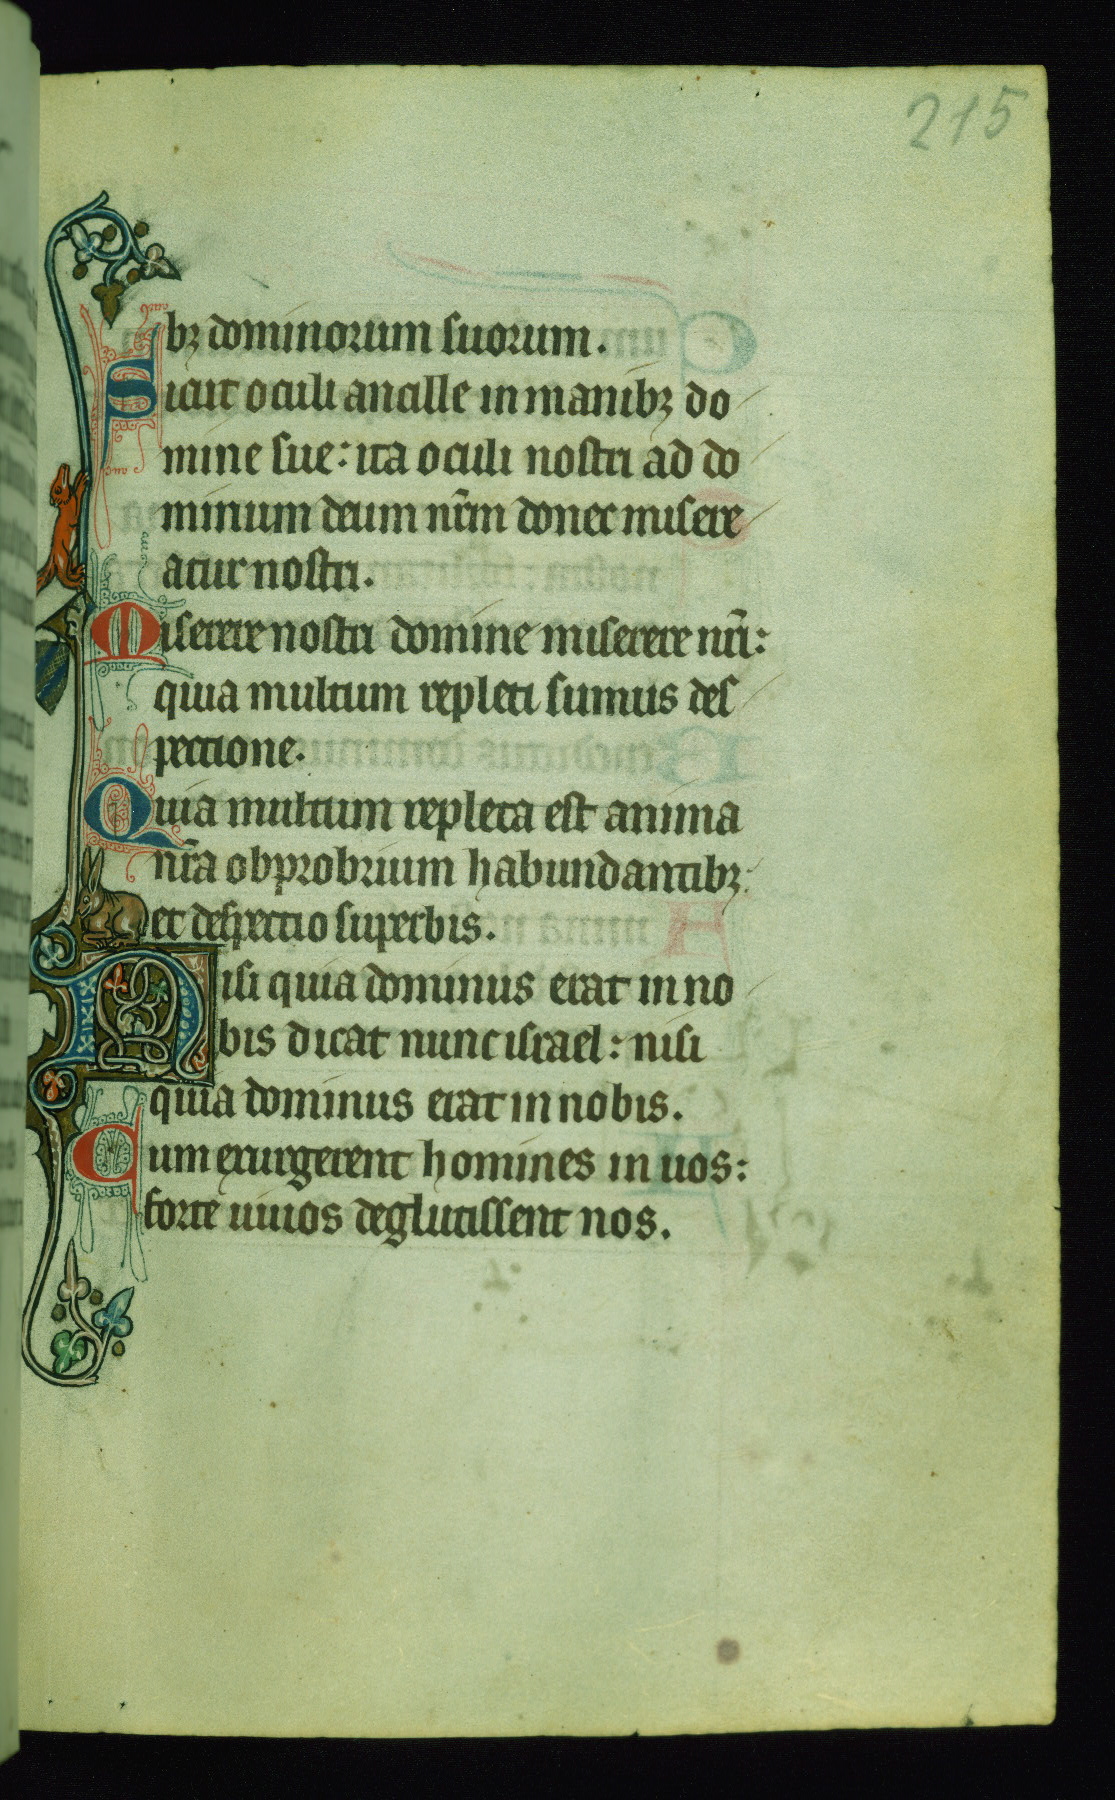 215
bꝫ dominorum suorum.
Sicut oculi ancille in manibꝫ do
mine sue: ita oculi nostri ad do
minum deum nr̄m donec misere
atur nostri.
Miserere nostri domine miserere nr̄i:
quia multum repleti sumus des
pectione.
Quia multum repleta est anima
nr̄a obprobrium habundantibꝫ
et despectio superbis.
Nisi quia dominus erat in no
bis dicat nunc israel: nisi
quia dominus erat in nobis.
Cum exurgerent homines in uos:
forte uiuos deglutissent nos.